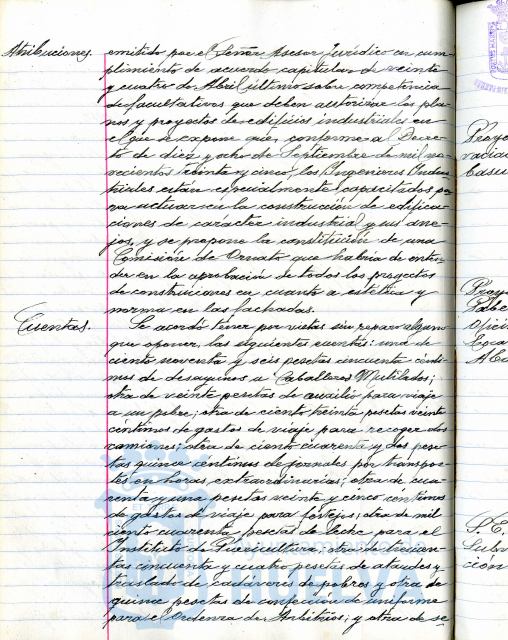 Atribuciones. emitido por el Señor Asesor Jurídico en cum-
plimiento de acuerdo capitular de veinte
y cuatro de Abril último sobre competencia
de facultativos que deben autorizar los pla-
nos y proyectos de edificios industriales en
el que se expone que, conforme al Decre-
to de diez y ocho de Septiembre de mil no-
vecientos treinta y cinco, los Ingenieros Indus-
triales están especialmente capacitados pa-
ra actuar en la construcción de edifica-
ciones de carácter industrial y sus ane-
jos, y se propone la constitución de una
Comisión de Ornato que habría de enten-
der en la aprobación de todos los proyectos
de construcciones en cuanto a estética y
norma en las fachadas.
Cuentas. Se acordó tener por vistas sin reparo alguno
que oponer, las siguientes cuentas: una de
ciento noventa y seis pesetas cincuenta cénti-
mos de desayunos a Caballeros Mutilados;
otra de veinte pesetas de auxilio para viaje
a un pobre; otra de ciento treinta pesetas veinte
céntimos de gastos de viaje para recoger dos
camiones; otra de ciento cuarenta y dos pese-
tas quince céntimos de jornales por transpor-
tes en horas extraordinarias; otra de cua-
renta y una pesetas veinte y cinco céntimos
de gastos de viaje para festejos; otra de mil
ciento cuarenta pesetas de leche para el
Instituto de Puericultura; otra de trescien-
tas cincuenta y cuatro pesetas de ataudes y
traslado de cadáveres de pobres y otra de
quince pesetas de confección de uniforme
para el Ordenanza de Arbitrios; y otra de se
HUELVA